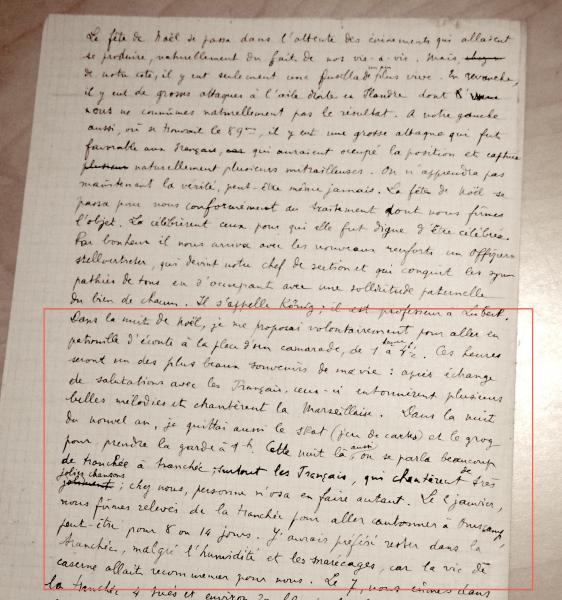 La fête de Noël se passa dans l'attente des évènements qui allaient
se produire, naturellement du fait de nos vis-à-vis. Mais,
de notre côté, il y eut seulement une fusillade un peu plus vive. En revanche,
il y eut de grosses attaques à l'aile droite en Flandre dont
nous ne connûmes naturellement pas le résultat. A notre gauche
aussi, où se trouvait le 89ème, il y eut une grosse attaque qui fut
favorable aux Français, qui auraient occupé la position et capturé
plusieurs naturellement plusieurs mitrailleuses. On n'apprendra pas
maintenant la vérité, peut-être même jamais. La fête de Noël se
passa pour nous conformément au traitement dont nous fûmes
l'objet. La célébrèrent ceux pour qui elle fut digne d'être célébrée.
Par bonheur il nous arriva avec les nouveaux renforts un Offiziers
stellvertreter, qui devint notre chef de section et qui conquit les sym
pathies de tous en s'occupant avec une sollicitude paternelle
du bien de chacun. Il s'appelle König; il est professeur à Lübeck.
Dans la nuit de Noël, je me proposai volontairement pour aller en
patrouille d'écoute à la place d'un camarade, de 1 à 4 ½. Ces heures
seront un des plus beaux souvenirs de ma vie : après échange
de salutations avec les Français, ceux-ci entonnèrent plusieurs
belles mélodies et chantèrent la Marseillaise. Dans la nuit
du nouvel an, je quittai aussi le Skat (jeu de cartes) et le grog
pour prendre la garde à 1 h. Cette nuit là aussi on se parla beaucoup
de tranchée à tranchée ; surtout les Français, qui chantèrent de très
jolies chansons
joliment ; chez nous, personne n'osa en faire autant. Le 2 janvier,
nous fûmes relevés de la tranchée pour aller cantonner à Ourscamp,
peut-être pour 8 ou 14 jours. J'aurais préféré rester dans la
tranchée, malgré l'humidité et les marécages, car la vie de
caserne allait recommencer pour nous. Le 7, nous eûmes dans
la tranchée 4 tués et environ 20